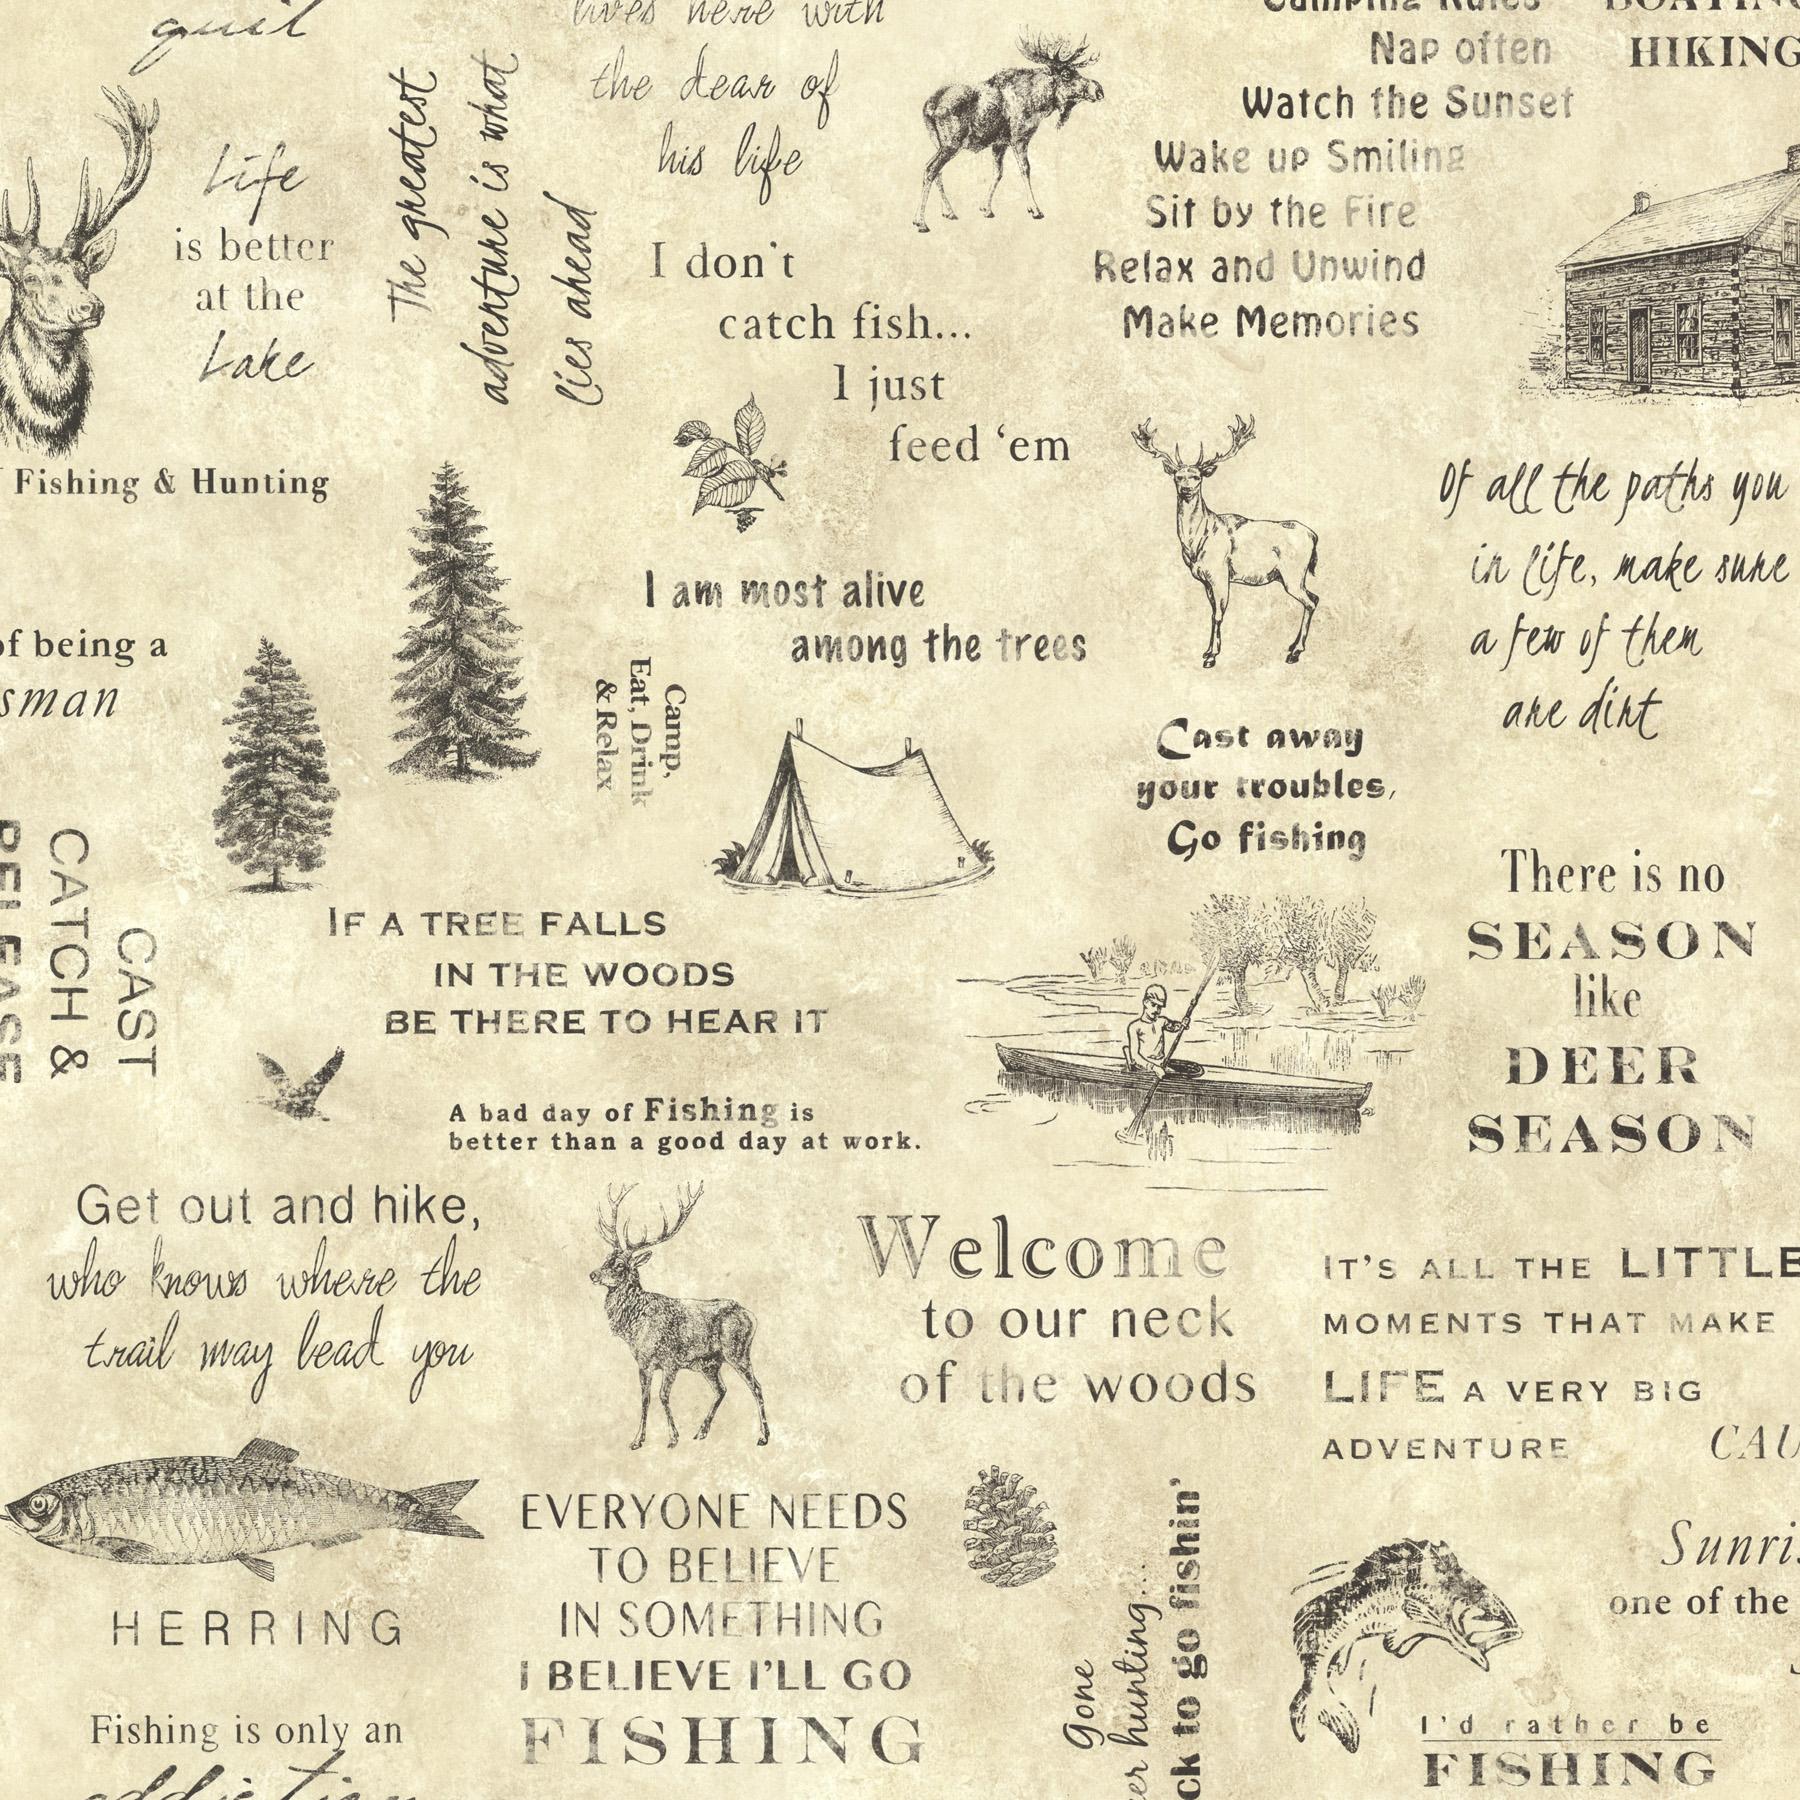 quil
lives here with
the dear of
his life
Camping Rules
Nap often
Watch the Sunset
Wake up Smiling
Sit by the Fire
Relax and Unwind
Make Memories
BOATING
HIKING
Life
is better
at the
Lake
The greatest
adventure is what
lies ahead
I don't
catch fish...
I just
feed ‘em
Fishing & Hunting
Of all the paths you
in life, make sure
a few of them
are dirt
I am most alive
among the trees
of being a
sman
Camp,
Eat, Drink
& Relax
Cast away
your troubles,
Go fishing
CAST
CATCH &
RELEASE
IF A TREE FALLS
IN THE WOODS
BE THERE TO HEAR IT
There is no
SEASON
like
DEER
SEASON
A bad day of Fishing is
better than a good day at work.
Get out and hike,
who knows where the
trail may lead you
Welcome
to our neck
of the woods
IT'S ALL THE LITTLE
MOMENTS THAT MAKE
LIFE A VERY BIG
ADVENTURE
CAU
HERRING
EVERYONE NEEDS
TO BELIEVE
IN SOMETHING
I BELIEVE I'LL GO
FISHING
Gone
er hunting....
ck to go fishin'
Sunris
one of the
Fishing is only an
addiction
I'd rather be
FISHING